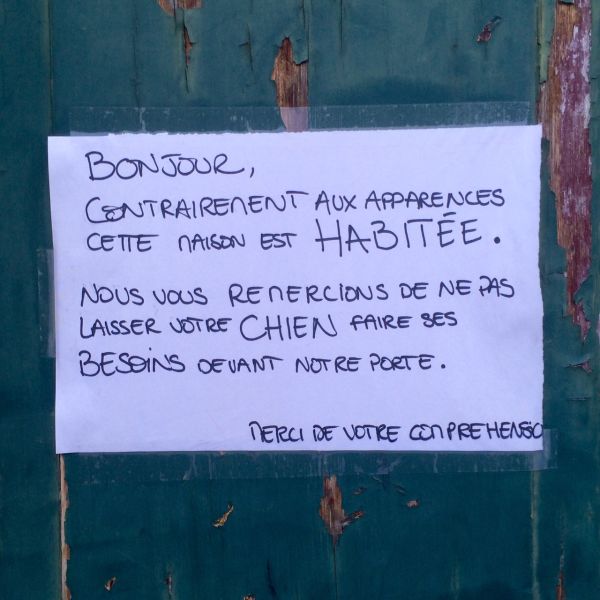 BONJOUR,
CONTRAIREMENT AUX APPARENCES
CETTE MAISON EST HABITÉE.
NOUS VOUS REMERCIONS DE NE PAS
LAISSER VOTRE CHIEN FAIRE SES
BESOINS DEVANT NOTRE PORTE.
MERCI DE VOTRE COMPREHENSIO